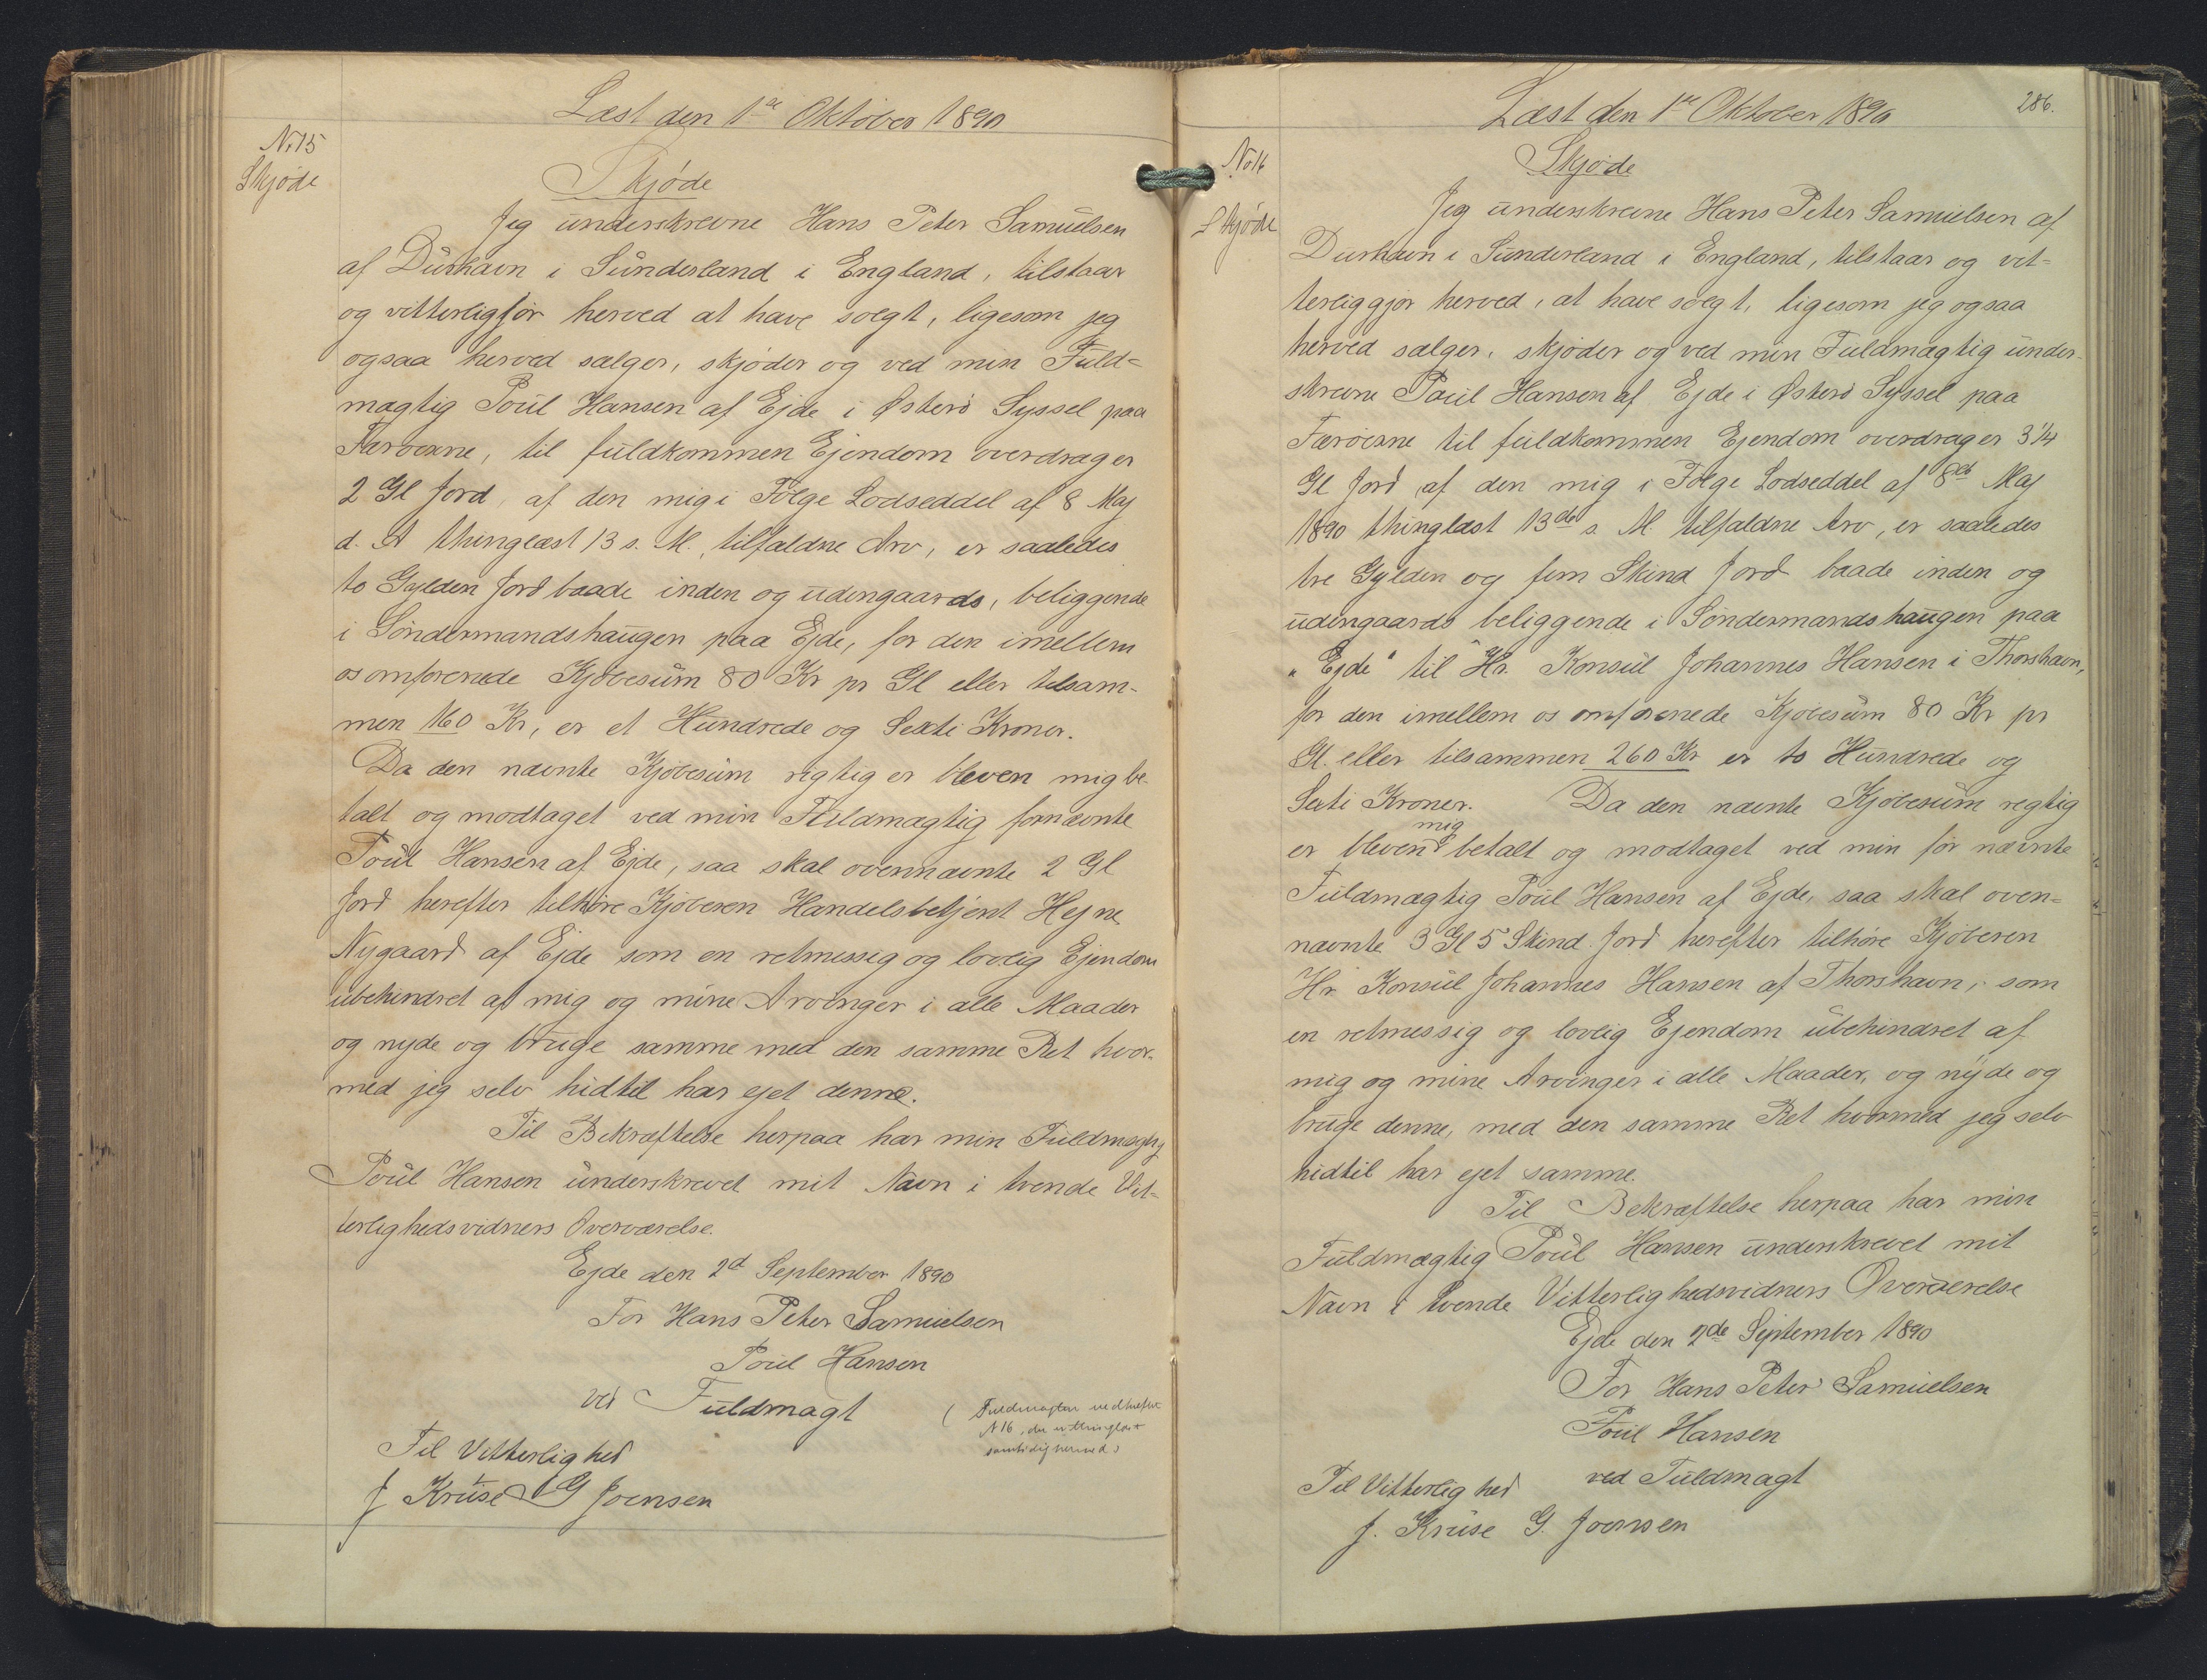 Læst den 1ste Oktober 1890
No 15
Skjøde
Skjøde
Jeg underskrevne Hans Peter Samuelsen
af Durhavn i Sunderland i England, tilstaar
og vitterligjør herved at have solgt, ligesom jeg
ogsaa herved sælger, skjøder og ved min Fuld=
mægtig Poul Hansen af Ejde i Østerö Syssel paa
Færoerne, til fuldkommen Ejendom overdrager
2 Gl Jord, af den mig i Følge Lodseddel af 8 Maj
d. A thinglæst 13 s. M., tilfaldne Arv, er saaledes
to Gylden Jord baade inden og udengaards, beliggende
i Søndermandshaugen paa Ejde, for den imellem
os omforenede Kjøbesum 80 Kr pr Gl eller tilsam-
men 160 Kr, er et Hundrede og Sexti Kroner.
Da den nævnte Kjøbesum rigtig er bleven mig be-
talt og modtaget ved min Fuldmægtig fornævnte
Poul Hansen af Ejde, saa skal ovennævnte 2 Gl
Jord herefter tilhøre Kjøberen Handelsbetjent Hejne
Nygaard af Ejde som en retmessig og lovlig Ejendom
ubehindret af mig og mine Arvinger i alle Maader
og nyde og bruge samme med den samme Ret hvor-
med jeg selv hidtil har ejet denne.
Til Bekræftelse herpaa har min Fuldmægtig
Poul Hansen underskrevet mit Navn i tvende Vit=
terlighedsvidners Overværelse.
Ejde den 2d September 1890
For Hans Peter Samuelsen
Poul Hansen
ved Fuldmagt
(Fuldmagten vedhæftet
N 16, der er thinglæst
samtidig hermed)
Til Vitterlighed
J Kruse G Joensen
Læst den 1ste Oktober 1890
286.
No 16
Skjøde
Skjøde
Jeg underskrevne Hans Peter Samuelsen af
Durhavn i Sunderland i England, tilstaar og vit=
terliggjør herved, at have solgt, ligesom jeg ogsaa
herved sælger, skjøder og ved min Fuldmægtig under-
skrevne Poul Hansen af Ejde i Østerö Syssel paa
Færöerne til fuldkommen Ejendom overdrager 3 1/4
Gl Jord af den mig i Følge Lodseddel af 8de Maj
1890 thinglæst 13de s. M tilfaldne Arv, er saaledes
tre Gylden og fem Skind Jord baade inden og
udengaards beliggende i Søndermandshaugen paa
"Ejde" til Hr. Konsul Johannes Hansen i Thorshavn,
for den imellem os omforenede Kjøbesum 80 Kr pr
Gl. eller tilsammen 260 Kr er to Hundrede og
Sexti Kroner. Da den nævnte Kjøbesum regtig
er bleven mig betalt og modtaget ved min før nævnte
Fuldmægtig Poul Hansen af Ejde, saa skal oven=
nævnte 3 Gl 5 Skind Jord herefter tilhøre Kjøberen
Hr. Konsul Johannes Hansen af Thorshavn, som
en retmessig og lovlig Ejendom ubehindret af
mig og mine Arvinger i alle Maader, og nyde og
bruge denne, med den samme Ret hvormed jeg selv
hidtil har ejet samme.
Til Bekræftelse herpaa har min
Fuldmægtig Poul Hansen underskrevet mit
Navn i tvende Vitterlighedsvidners Overværelse
Ejde den 2de September 1890
For Hans Peter Samuelsen
Poul Hansen
ved Fuldmagt
Til Vitterlighed
J. Kruse G. Joensen